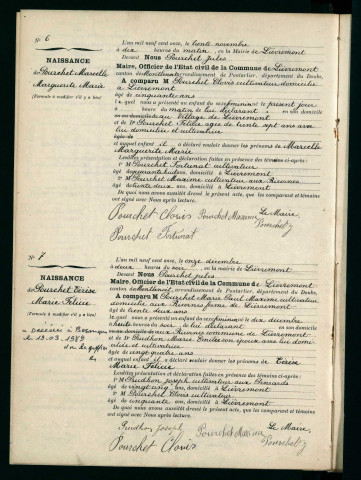 N° 6
NAISSANCE
de Pourchet Marcelle
Marguerite Maria
(Formule à modifier s'il y a lieu)
L'an mil neuf cent onze, le trente novembre
à dix heures du matin, en la Mairie de Lièvremont
Devant Nous Pourchet Jules
Maire, Officier de l'Etat civil de la Commune de Lièvremont
canton de Montbenoit, arrondissement de Pontarlier, département du Doubs,
A comparu M Pourchet Clovis cultivateur domicilié
à Lièvremont
âgé de cinquante ans
lequel nous a présenté un enfant du sexe féminin né le présent jour
heures du matin de lui déclarant en son domicile
au village de Lièvremont
et de
âgée de trente sept ans
domiciliée et cultivatrice
et auquel enfant il a déclaré vouloir donner les prénoms de Marcelle
Marguerite Marie
Lesdites présentation et déclaration faites en présence des témoins ci-après:
1° M Pourchet Fortunat cultivateur
âgé de ans, domicilié à Lièvremont
2° M Pourchet Maxime cultivateur
âgé de trente deux ans, domicilié à Lièvremont
De quoi nous avons dressé le présent acte, que les comparant et témoins
ont signé avec Nous après lecture.
Pourchet Clovis Pourchet Maxime Le Maire,
Pourchet Fortunat Pourchet J
N° 7
NAISSANCE
de Pourchet Térèse
Marie Félicie
(Formule à modifier s'il y a lieu)
décédée à Besançon
le 13.03.1989
L'an mil neuf cent onze, le onze décembre
à deux heures du soir, en la mairie de Lièvremont
Devant Nous Pourchet Jules
Maire, Officier de l'Etat civil de la Commune de Lièvremont
canton de Montbenoit, arrondissement de Pontarlier, département du Doubs,
A comparu M Pourchet Marie Paul Maxime cultivateur
domicilié aux ferme de Lièvremont
âgé de trente deux ans
lequel nous a présenté un enfant du sexe féminin né le dix décembre
à heures du soir, de lui déclarant en son domicile
commune de Lièvremont
et de Prudhon Marie Emilie son épouse avec lui domiciliée
et cultivatrice
âgée de vingt quatre ans
et auquel enfant il a déclaré vouloir donner les prénoms de Térèse
Marie Félicie
Lesdites présentation et déclaration faites en présence des témoins ci-après:
1° M Prudhon Joseph cultivateur aux
âgé de vingt cinq ans, domicilié à Lièvremont
2° M Pourchet Clovis cultivateur
âgé de cinquante ans, domicilié à Lièvremont
De quoi nous avons dressé le présent acte, que les comparant et témoins
ont signé avec Nous après lecture.
Prudhon Joseph Pourchet Maxime Le Maire,
Pourchet Clovis Pourchet J